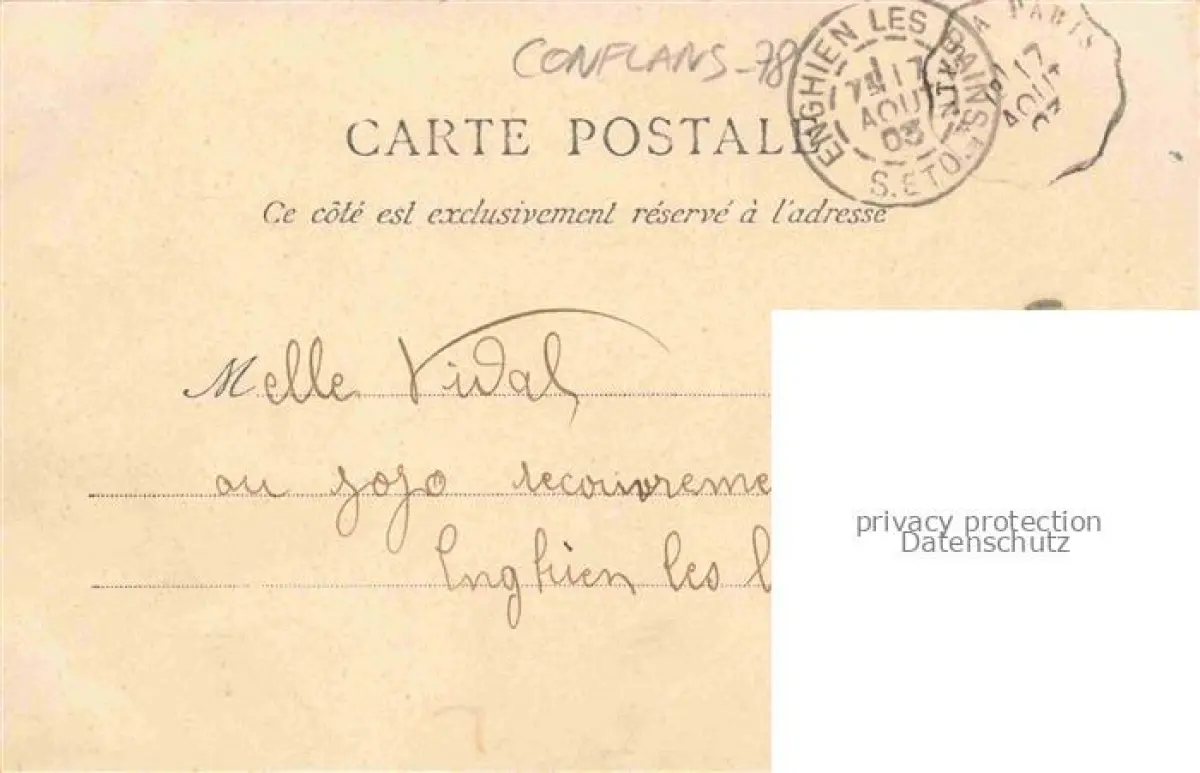 CONFLANS-78
ENGHIEN LES BAINS S. ET O.
17 AOUT 03
A PARIS
17 AOUT 03
CARTE POSTALE
Ce côté est exclusivement réservé à l'adresse
Melle Vidal
au recouvreme
Enghien les
privacy protection
Datenschutz